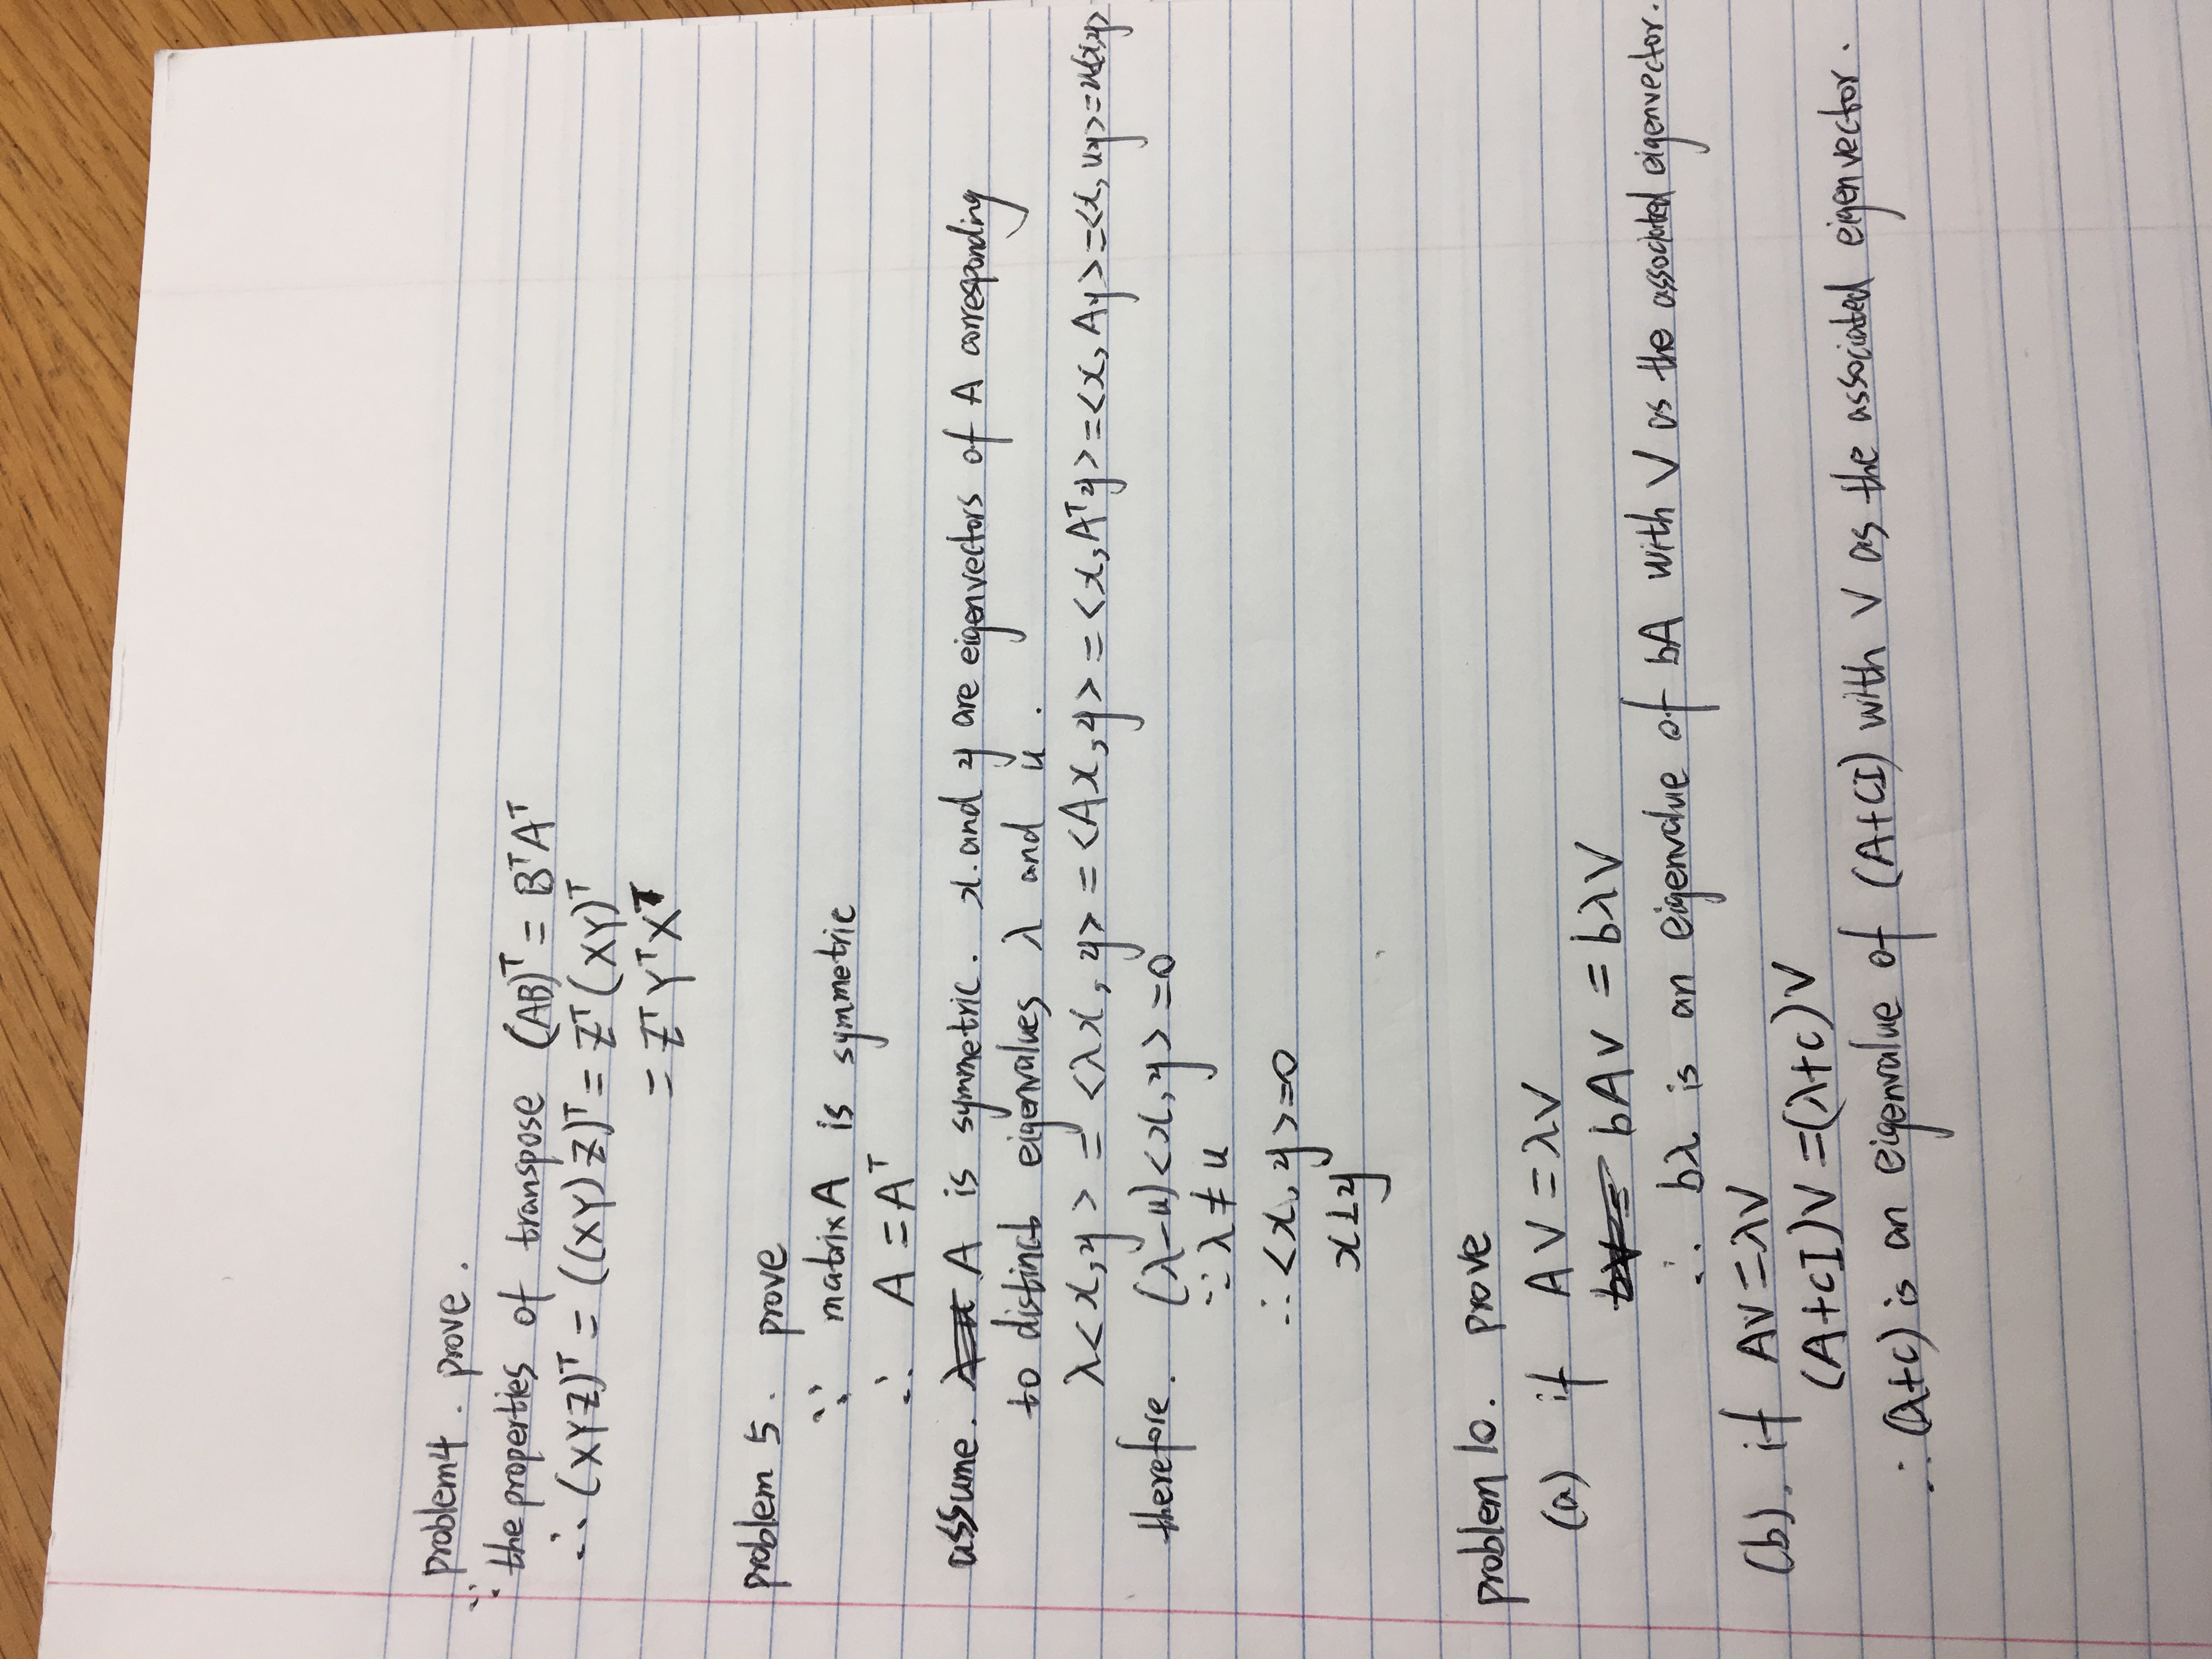 problem4 . prove .
∵ the properties of transpose (AB)ᵀ = BᵀAᵀ
∴ (XYZ)ᵀ = ((XY)Z)ᵀ = Zᵀ(XY)ᵀ
= ZᵀYᵀXᵀ
problem 5 . prove
∵ matrix A is symmetric
∴ A = Aᵀ
assume. A is symmetric. x. and y are eigenvectors of A corresponding
to distinct eigenvalues λ and u .
λ<x,y> = <λx, y> = <Ax,y> = <x,Aᵀy> = <x, Ay> = <x, uy> = u<x,y>
therefore. (λ-u)<x,y> = 0
∵ λ ≠ u
∴ <x, y> = 0
x⊥y
problem 10. prove
(a) if AV = λV
bAV = bλV
∴ bλ is an eigenvalue of bA with V as the associated eigenvector.
(b). if AV = λV
(A+cI)V = (λ+c)V
∴ (λ+c) is an eigenvalue of (A+CI) with V as the associated eigenvector.